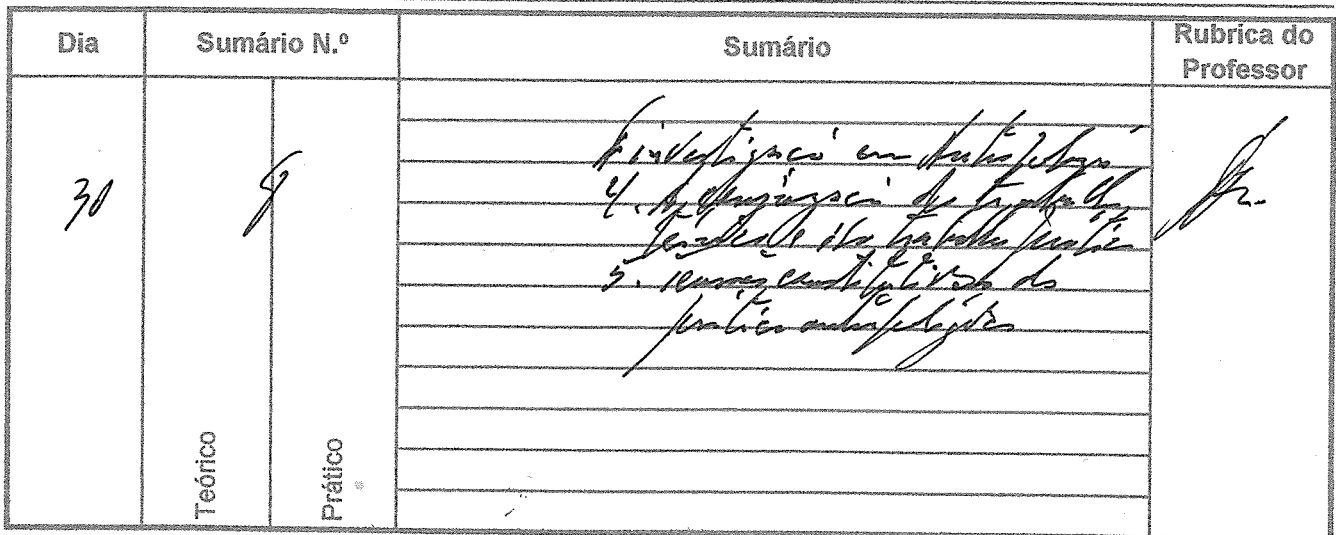 Dia
Sumário N.º
Sumário
Rubrica do
Professor
30
8
A investigação em Antropologia
4. A organização do trabalho
teórico e do trabalho prático
5. constitutivos da
prática antropológica
Teórico
Prático